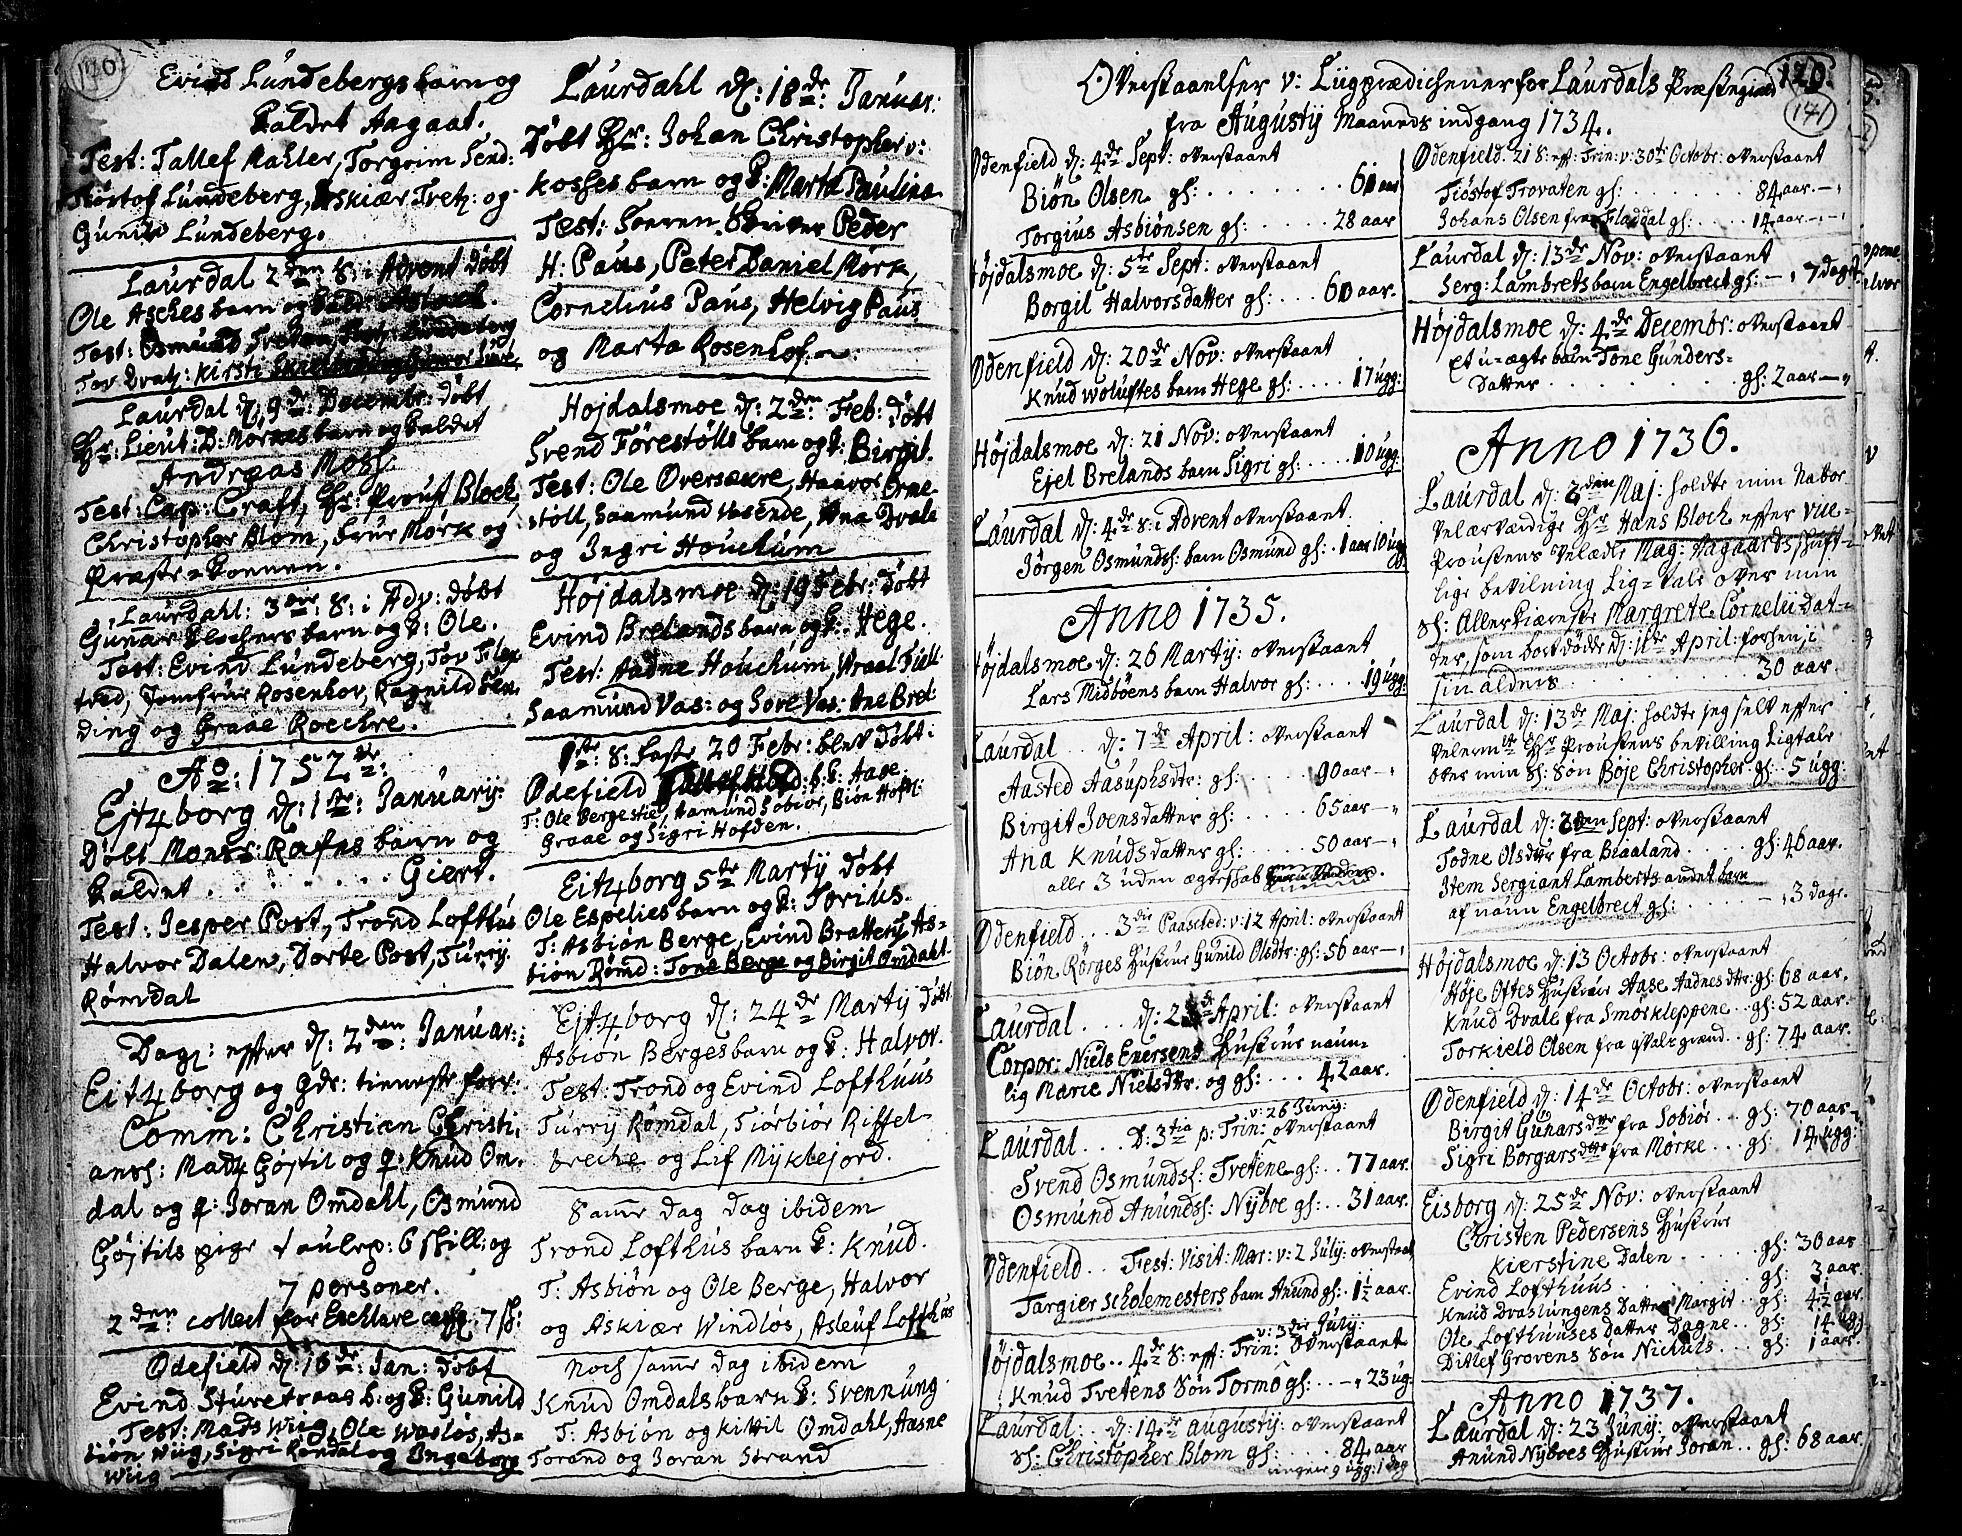 170.
Evind Lundebergs barn og
kaldet Aagaat.
Test: Tallef Mahler, Torgrim Send:
Tiøstof Lundeberg, Askiær Tvetȝ: og
Gunild Lundeberg.
Laurdal 2den S: i Advent døbt
Ole Asches barn og
Test: Osmund Tveten
Tov Dvatȝ: Kirsti
Laurdal d: 9de Decembr: døbt
Hr: Lieut: D: Mørkes barn og kaldet
Andreas Moss.
Test: Cap: Craft, Hr: Proust Block,
Christopher Blom, frue Mørk og
Præste-Konnen.
Laurdahl: 3die: S: i Adv: døbt
Gunar Klochers barn og k: Ole.
Test: Evind Lundeberg, Tov Flox
tred, Jomfrue Rosenhov, Ragnild Sun
ding og Graae Roechre.
Ao: 1752de:
Ejtzborg d: 1ste: Januarij:
Døbt Monsr: Rafns barn og
kaldet . . . . . . . . Giert.
Test: Jesper Post, Trond Lofthus
Halvor Dalen, Dorte Post, Turrij
Rømdal
Dagȝ: efter d: 2den: Januar:
Eitzborg og gdr: tieneste forr:
Comm: Christian Christi,
ansȝ: Madz Gøjtil og q: Knud Om.
dal og q: Joran Omdahl, Osmund
Gøjtils pige 6 skill: og
7 personer.
2den collect for Esclave cassȝ 7 sȝ:
Ødefield d: 16de: Jan: døbt
Evind Sturetraas b: og k: Gunild
Test: Mads Wiig, Ole Wasløs, As-
biøn Wiig, Sigri Rondal og Ingeborg
Wiig
Laurdahl d: 18de: Januar:
Døbt Hr: Johan Christopher v:
Kosses barn og k: Marta Paulina
Test: Soeren Skriver Peder
H: Paus, Peter Daniel Mørk,
Cornelius Paus, Helvig Paus
og Marta Rosenhof.
Højdalsmoe d: 2den: Feb: døbt
Svend Førestølls barn og k: Birgit.
Test: Ole Oversækre, Haavor Ørne-
støll, Saamund Vasende, Ana Dvale
og Ingri Houchum
Højdalsmoe d: 19 Febr: døbt
Evind Brelands barn og k: Hege.
Test: Aadne Houchum, Wraal Full
Saamund Vas: og Sore Vas: Ane Brel:
1ste: S: Faste 20 Febr: blev døbt:
Ødefield k: Aase
T: Ole Bergestie, Aamund Sobiør, Biøn Hofd:
Graae og Sigri Hofden.
Eitzborg 5te Martij døbt
Ole Espelies barn og k: Torius.
T: Asbiøn Berge, Evind Bratterij As-
biøn Rømd: Tone Berge og Birgit Omdahl
Ejtzborg d: 24de Martij døbt
Asbiøn Berges barn og k: Halvor.
Test: Trond og Evind Lofthuus
Turrij Rømdal, Tiørbiør Riffel
breche og Lif Mijklejord.
Samme dag dag ibidem
Trond Lofthus barn k: Knud.
T: Asbiøn og Ole Berge, Halvor
og Askiær Windløs, Asleuf Lofthus
Noch samme dag ibidem
Knud Omdals barn k: Svennung
T: Asbiøn og Kittil Omdahl, Aasne
Torand og Joran Strand
Overstaaelser v: Liigprædichener for Laurdals Præstegield
120.
171
fra Augustij Maaneds indgang 1734.
Ødenfield d: 4de Sept: overstaaet
Biøn Olsen gȝ: . . . . . . . . 60 aar
Torgius Asbiønsen gȝ: . . . . . 28 aar
Højdalsmoe d: 5te Sept: overstaaet
Borgil Halvorsdatter gȝ: . . . 60 aar.
Ødenfield d: 20de Nov: overstaaet
Knud woluftes barn Hege gȝ: . . . . 17 ugg:
Højdalsmoe d: 21 Nov: overstaaet
Ejel Brelands barn Sigri gȝ: . . . . 10 ugg:
Laurdal d: 4de S: i Advent overstaaet.
Jørgen Osmundsȝ: barn Osmund gȝ: . 1 aar 10 ugg:
Anno 1735.
Højdalsmoe d: 26 Martij: overstaaet
Lars Midbøens barn Halvor gȝ: . . . . 19 ugg:
Laurdal . . d: 7de April: overstaaet
Aasted Aasuphsdtr: gȝ: . . . . 90 aar
Birgit Joensdatter gȝ: . . . . 65 aar
Ana Knudsdatter gȝ: . . . . 50 aar
alle 3 uden ægteskab
Ødenfield . . . 3die Paasked: v: 12 April: overstaaet
Biøn Rørges Hustrue Gunild Olsdtr: gȝ: 56 aar
Laurdal . . . . d: April: overstaaet
Corpor: Niels Enersens Hustrue naun-
lig Marie Nielsdtr. og gȝ: . . . 42 aar.
v: 26 Junij:
Laurdal . . . D: 3tia p: Trin: overstaaet
Svend Osmundsȝ: Tvetene gȝ: . . 77 aar.
Osmund Anundsȝ: Nyboe gȝ: . . 31 aar.
Ødenfield . . . Fest: Visit: Mar: v: 2 Julij: overstaaet
Targier Scholemesters barn Anund gȝ: . 1½ aar.
v: 3die Julij:
Højdalsmoe . . 4de S: eft: Trin: overstaaet
Knud Tvetens Søn Tormo gȝ: . . 23 ug
Laurdal: . . d: 14de Augustij: overstaaet
Sȝ: Christopher Blom gȝ: . . . . 84 aar
9 ugg: 1 dag
Ødenfield. 21 S: eft: Trin: v: 30te Octobr: overstaaet
Tiøstof Trovaten gȝ: . . . . . . . . 84 aar.
Johans Olsen fra Fladdal gȝ: . . . . 14 aar
Laurdal d: 13de Nov: overstaaet
Serg: Lambrets barn Engelbrect gȝ: - 7 dage.
Højdalsmoe d: 4de Decembr: overstaaet
Et u-ægte barn Tone Gunders-
datter . . . . . . . . gȝ: 2 aar
Anno 1736.
Laurdal d: 2den Maj: holdte min Nabor
Velærværdige Hr Hans Block efter Vice-
Proustens Velædle Mag: Aagaards skrift-
lige bevilning Lig-tale over min
Sȝ: Allerkiæreste Margrete Cornelii dat-
ter, som bort døde d: 11te April: forhen, i
sin alders . . . . . . . . . 30 aar.
Laurdal d: 13de Maj: holdte jeg selv efter
Velermte Hr Proustens bevilling Ligtale
over min Sȝ: Søn Bøje Christopher gȝ: 5 ugg:
Laurdal d: Sept: overstaaet
Todne Olsdtr fra Braaland . . . . . gȝ: 46 aar.
Item Sergiant Lamberts andet barn
af naun Engelbrect gȝ: . . . . . - 3 dage.
Højdalsmoe d: 13 Octobr: overstaaet
Høje Oftes Hustrue Aase Aadnesdtr: gȝ: 68 aar.
Knud Dvale fra Smørkleppene . . gȝ: 52 aar.
Torkield Olsen fra grænd . . gȝ: 74 aar.
Ødenfield d: 14de Octobr: overstaaet
Birgit Gunarsdtr fra Sobiør . . gȝ: 70 aar
Sigri Borgarsdtr fra Mørke . . . gȝ: 14 ugg:
Eisborg d: 25de Nov: overstaaet
Christen Pedersens Hustrue
Kierstine Dalen . . . . . gȝ: 30 aar
Evind Lofthuus . . . . . . . gȝ: 3 aar.
Knud Draslungens Datter Margit . . gȝ: 4½ aar.
Ole Lofthuuses Datter Dagne . . gȝ: 14 ugg
Ditlef Grovens Søn Nichuls . . . gȝ: 1 aar.
Anno 1737.
Laurdal d: 23 Junij: overstaaet
Anund Nyboes Hustrue Joran . . gȝ: 68 aar.